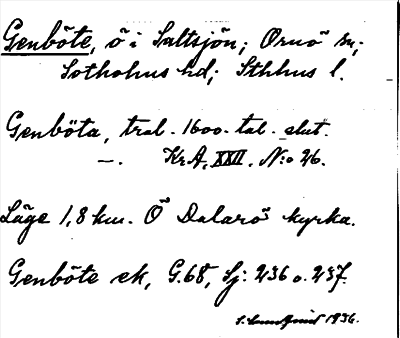 Genböte, ö i Saltsjön; Ornö sn;
Sotholms hd; Sthlms l.
Genböta, trol. 1600-tal. slut.
—. Kr.A. XXII. N:o 26.
Läge 1,8 km. Ö Dalarö kyrka.
Genböte ek, G.68, Sj: 236 o. 237.
1936.